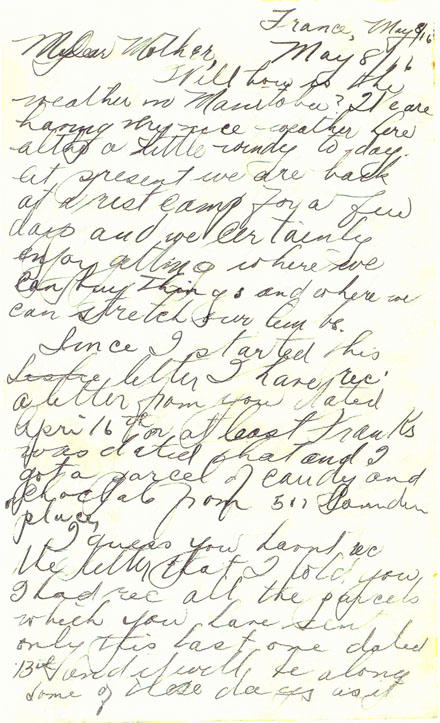 France, May 8/16
My Dear Mother, May 8/16
Well how is the
weather in Manitoba? We are
having very nice weather here
altho a little windy to day.
At present we are back
at a rest camp for a few
days and we certainly
enjoy getting where we
can buy things and where we
can stretch our limbs.
Since I started this
letter I have rec'
a letter from you dated
April 16th or at least Franks
was dated that and I
got a parcel of candy and
of chocolate from 511
place,
I guess you havnt rec
the letter that I told you
I had rec all the parcels
which you have sent
only this last one dated
13th and it will be along
some of these days as it